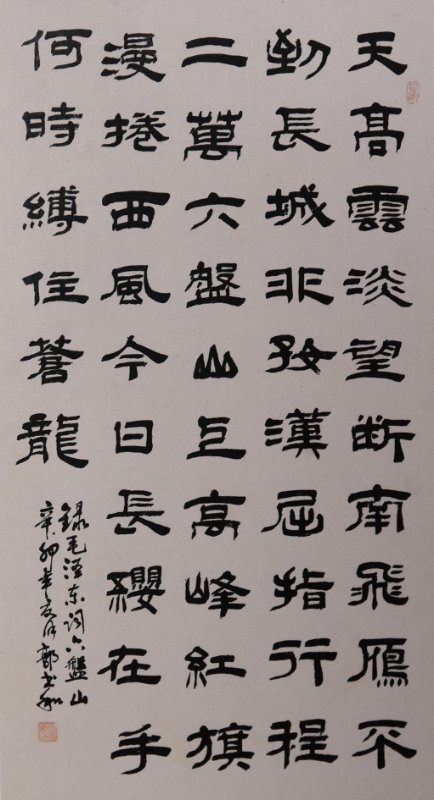 天髙雲淡望断南飛鴈不
到長城非好漢屈指行程
二萬六盤山上高峰紅旗
漫捲西風今日長纓在手
何時縛住蒼龍
録毛泽东词六盤山
辛卯年夏月郭